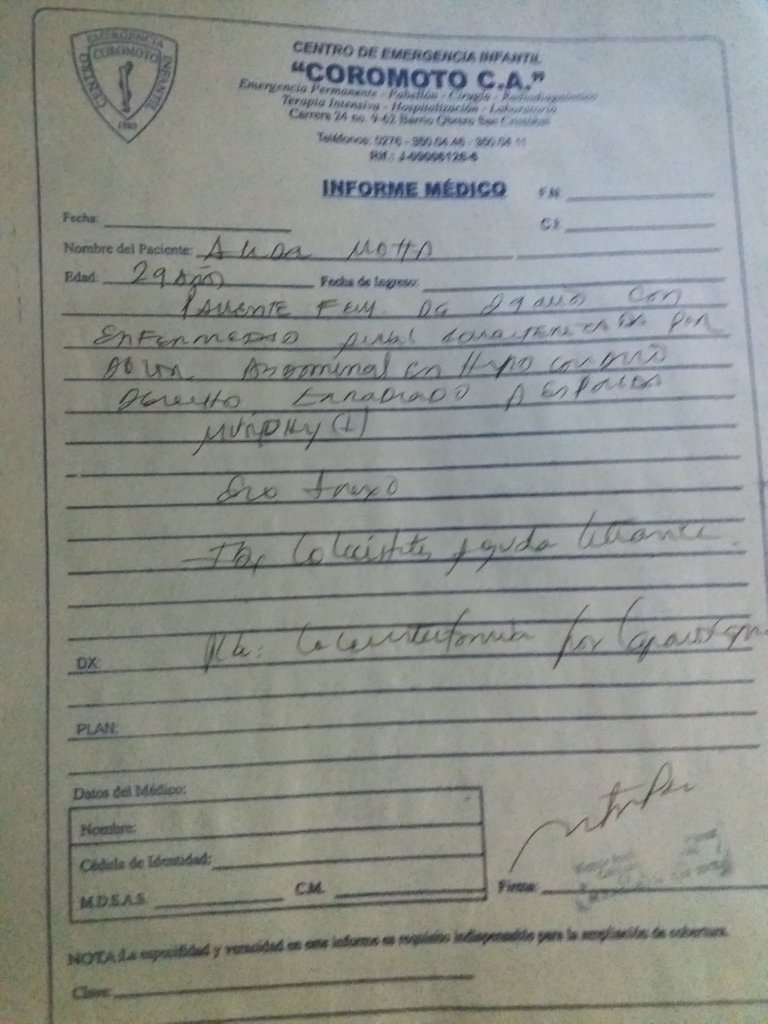 EMERGENCIA
COROMOTO
CENTRO INFANTIL
1980
CENTRO DE EMERGENCIA INFANTIL
"COROMOTO C.A."
Emergencia Permanente - Pabellón - Cirugía - Radiodiagnóstico
Terapia Intensiva - Hospitalización - Laboratorio
Carrera 24 no. 9-62 Barrio Obrero San Cristóbal
Teléfonos: 0276 -
Rif.:
INFORME MÉDICO
Fecha:
Nombre del Paciente: Motta
Edad: 29 años Fecha de Ingreso:
Paciente Fem. de 29 años con
enfermedad caracterizada por
dolor Abdominal en Hipocondrio
derecho irradiado a espalda
Murphy (+)
Eco anexo
Colecistitis Aguda Litiasica.
DX:
Colecistectomia por
PLAN:
Datos del Médico:
Nombre:
Cédula de Identidad:
M.D.S.A.S. C.M. Firma:
NOTA: La especifidad y veracidad en este informe es requisito indispensable para la ampliación de cobertura.
Clave: